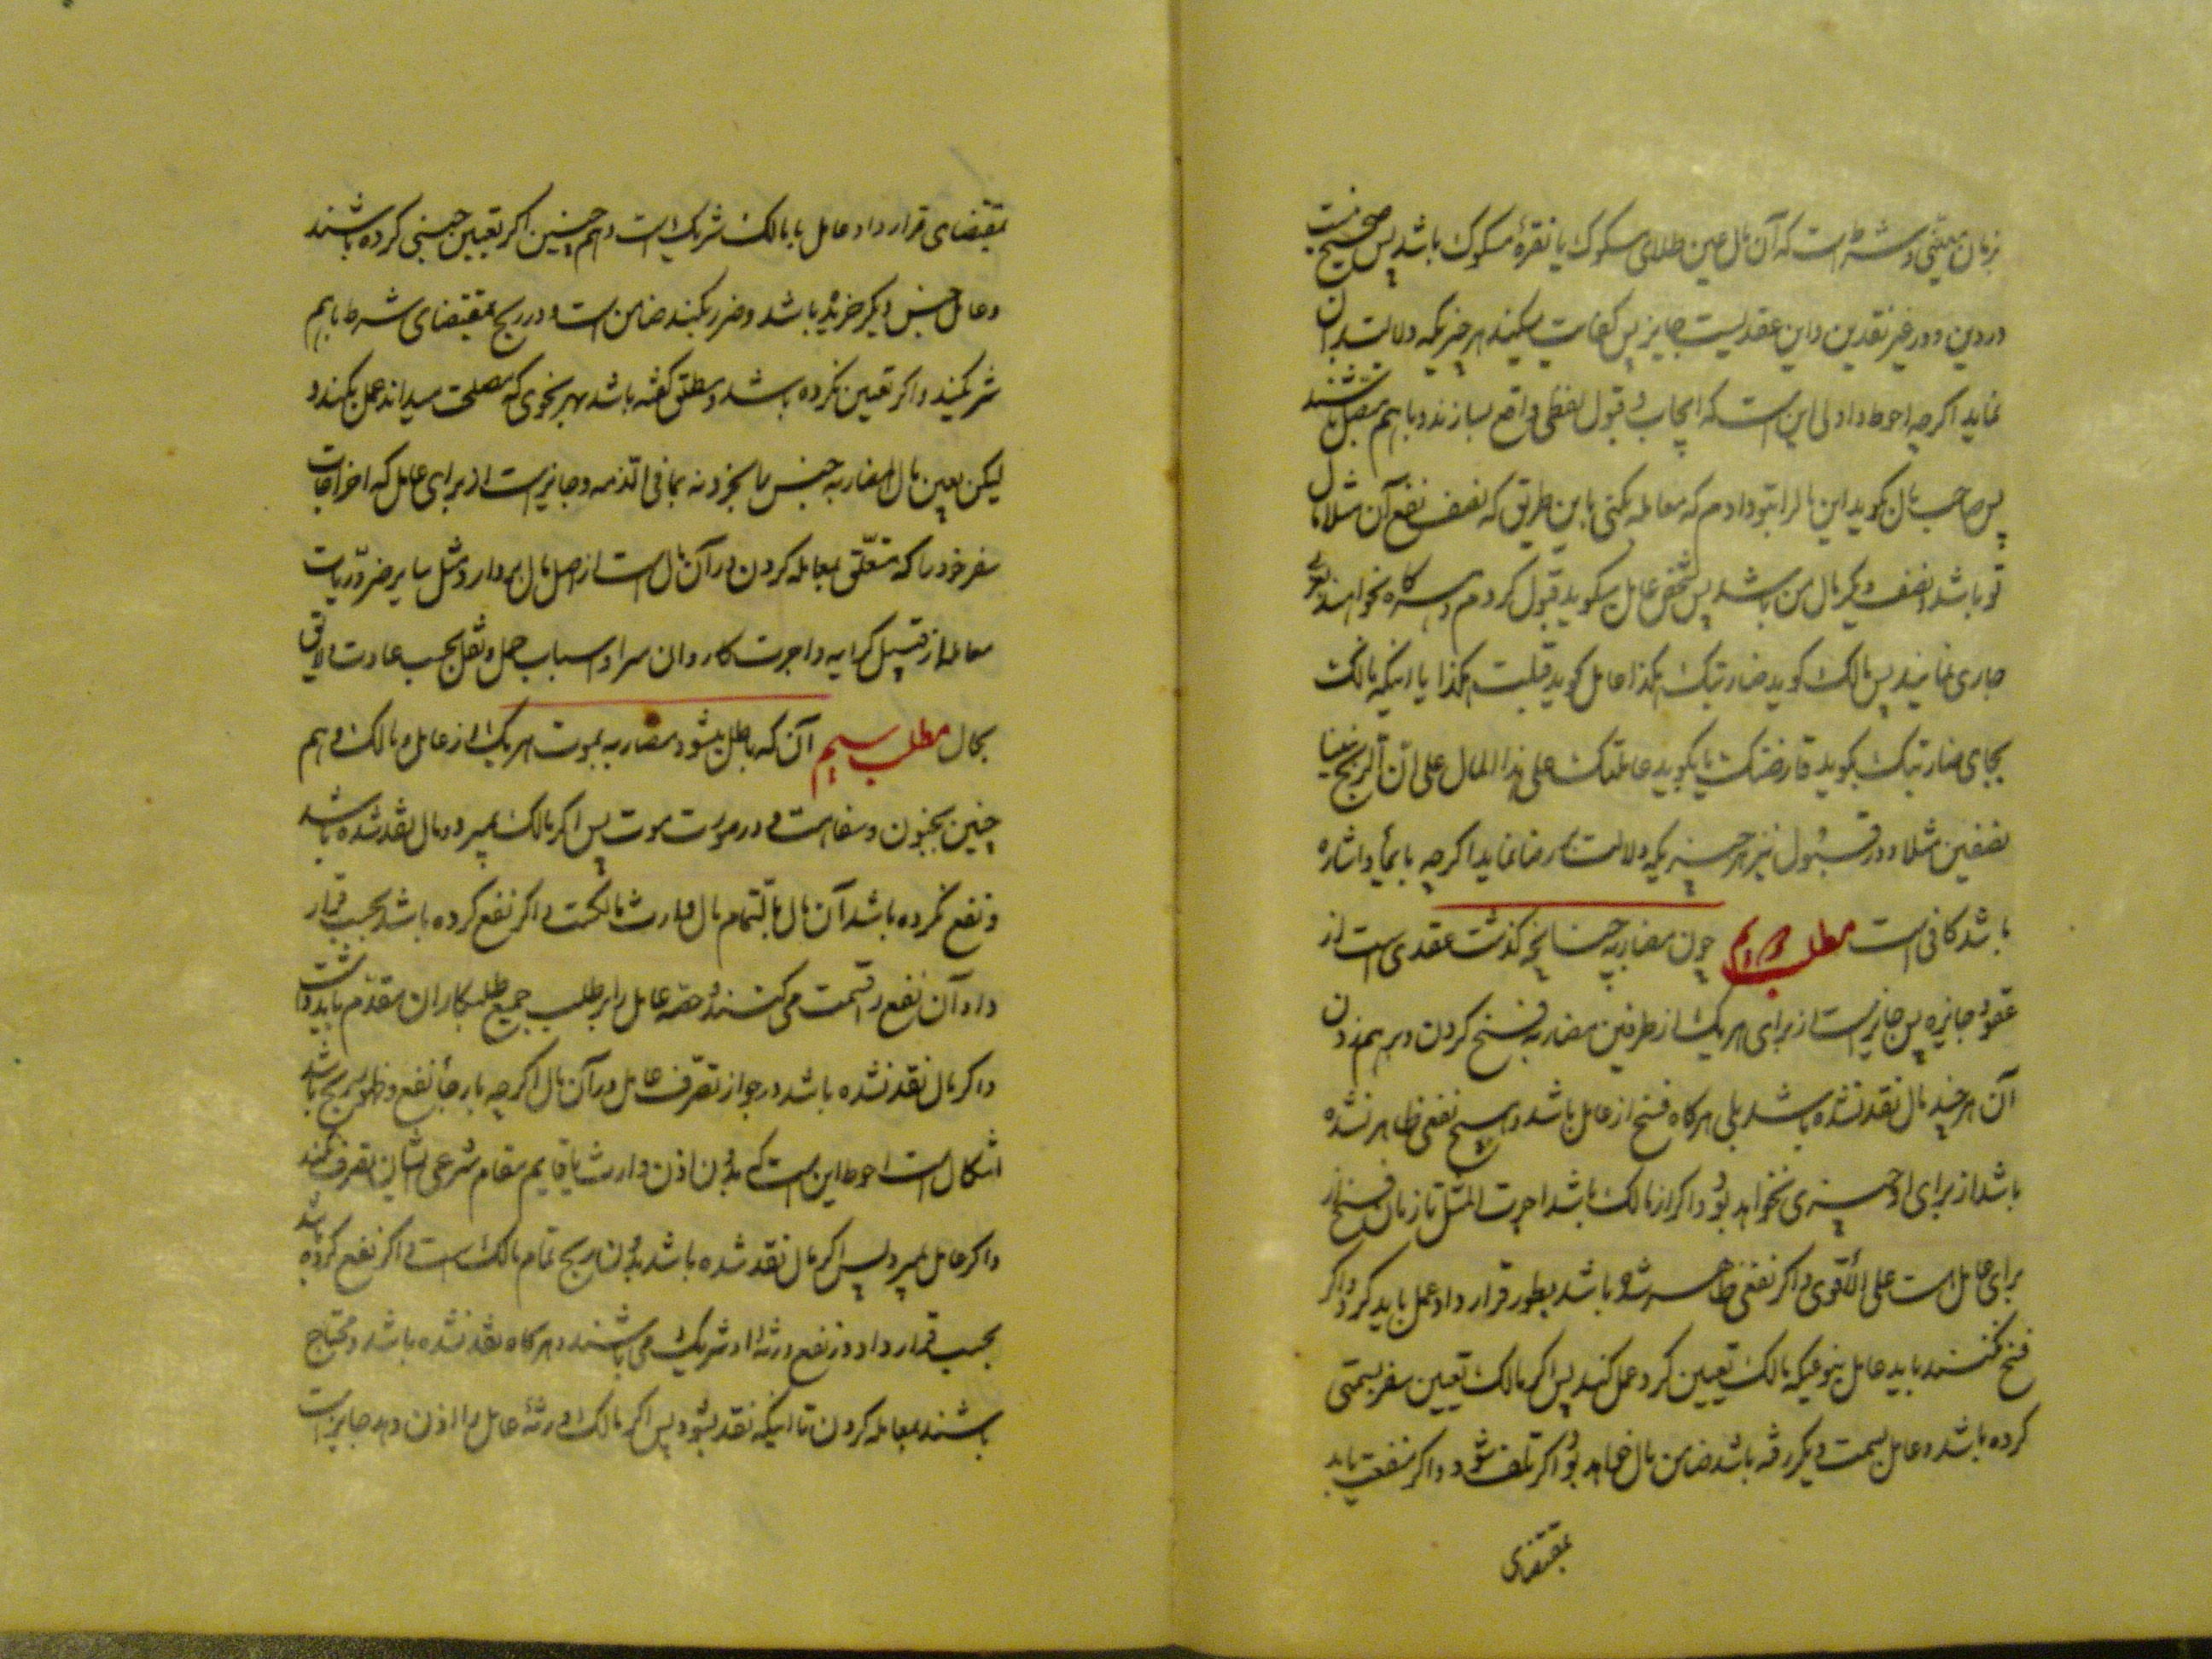 زمان معینی و شرطست که آن مال عین طلای مسکوک یا نقرهٔ مسکوک باشد پس صحیح نیست
در دین و در غیر نقدین و این عقدیست جایز پس کفایت میکند هر چیزیکه دلالت بدان
نماید اگرچه احوط و اولی این است که ایجاب و قبول لفظی واقع سازند و با هم متصل باشند
پس صاحب مال بگوید این مال را بتو دادم که معامله بکنی باین طریق که نصف نفع آن مثلا مال
تو باشد و نصف دیگر مال من باشد پس شخص عامل بگوید قبول کردم و هرگاه بخواهند بعربی
جاری نمایند پس مالک گوید ضاربتک بکذا عامل گوید قبلت بکذا یا اینکه مالک
بجای ضاربتک بگوید قارضتک یا بگوید عاملتک علی هذا المال علی ان الربح بیننا
نصفین مثلا و در قبول نیز هر چیزیکه دلالت بر رضا نماید اگرچه بایماء و اشاره
باشد کافی است مطلب دویم چون مضاربه چنانچه گذشت عقدی است از
عقود جایزه پس جایز است از برای هر یک از طرفین مضاربه فسخ کردن و برهم زدن
آن هر چند مال نقد نشده باشد بلی هرگاه فسخ از عامل باشد و هیچ نفعی ظاهر نشده
باشد از برای او چیزی نخواهد بود و اگر از مالک باشد اجرت المثل تا زمان فسخ از
برای عامل است علی الأقوی و اگر نفعی ظاهر شده باشد بطور قرار داد عمل باید کرد و اگر
فسخ نکنند باید عامل بنوعیکه مالک تعیین کرد عمل کند پس اگر مالک تعیین سفر بسمتی
کرده باشد و عامل بسمت دیگر رفته باشد ضامن مال خواهد بود اگر تلف شود و اگر منفعت یابد
بمقتضای
بمقتضای قرار داد عامل با مالک شریک است و هم چنین اگر تعیین جنسی کرده باشند
و عامل جنس دیگر خریده باشد و ضرر بکند ضامن است و در ربح بمقتضای شرط باهم
شریکند و اگر تعیین نکرده باشد و مطلق گفته باشد بهر نحوی که مصلحت میداند عمل بکند و
لیکن بعین مال المضاربه جنس را بخرد نه بما فی الذمه و جایز است از برای عامل که اخراجات
سفر خود را که متعلق بمعامله کردن در آن مال است از اصل مال بردارد و مثل سایر ضروریات
معامله از قبیل کرایه و اجرت کاروان سرا و اسباب حمل و نقل بحسب عادت و لایق
بحال مطلب سیم آن که باطل میشود مضاربه بموت هر یک از عامل و مالک و هم
چنین بجنون و سفاهت و در صورت موت پس اگر مالک بمیرد و مال نقد شده باشد
و نفع نکرده باشد آن مال بالتمام مال وارث مالکست و اگر نفع کرده باشد بحسب قرار
داد آن نفع را قسمت می کنند و حصه عامل را بر طلب جمیع طلبکاران مقدم باید داشت
و اگر مال نقد نشده باشد در جواز تصرف عامل در آن مال اگرچه بارجاء نفع و ظهور ربح باشد
اشکال است احوط این است که بدون اذن وارث یا قایم مقام شرعی ایشان تصرف نکند
و اگر عامل بمیرد پس اگر مال نقد شده باشد بدون ربح تمام مالک است و اگر نفع کرده باشد
بحسب قرار داد در نفع ورثهٔ او شریک می باشند و هرگاه نقد نشده باشد و محتاج
باشند بمعامله کردن تا اینکه نقد بشود پس اگر مالک ورثهٔ عامل را اذن دهد جایز است